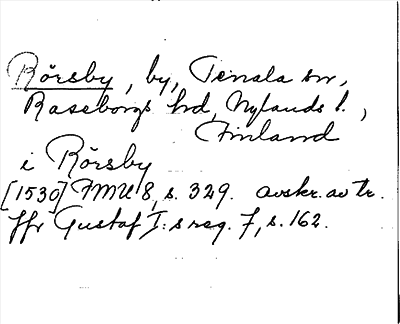 Rörsby, by, Tenala sn,
Raseborgs hd, Nylands l.,
Finland
i Rörsby
[1530] FMU 8, s. 329. avskr. av tr.
jfr Gustaf I:s reg. 7, s. 162.